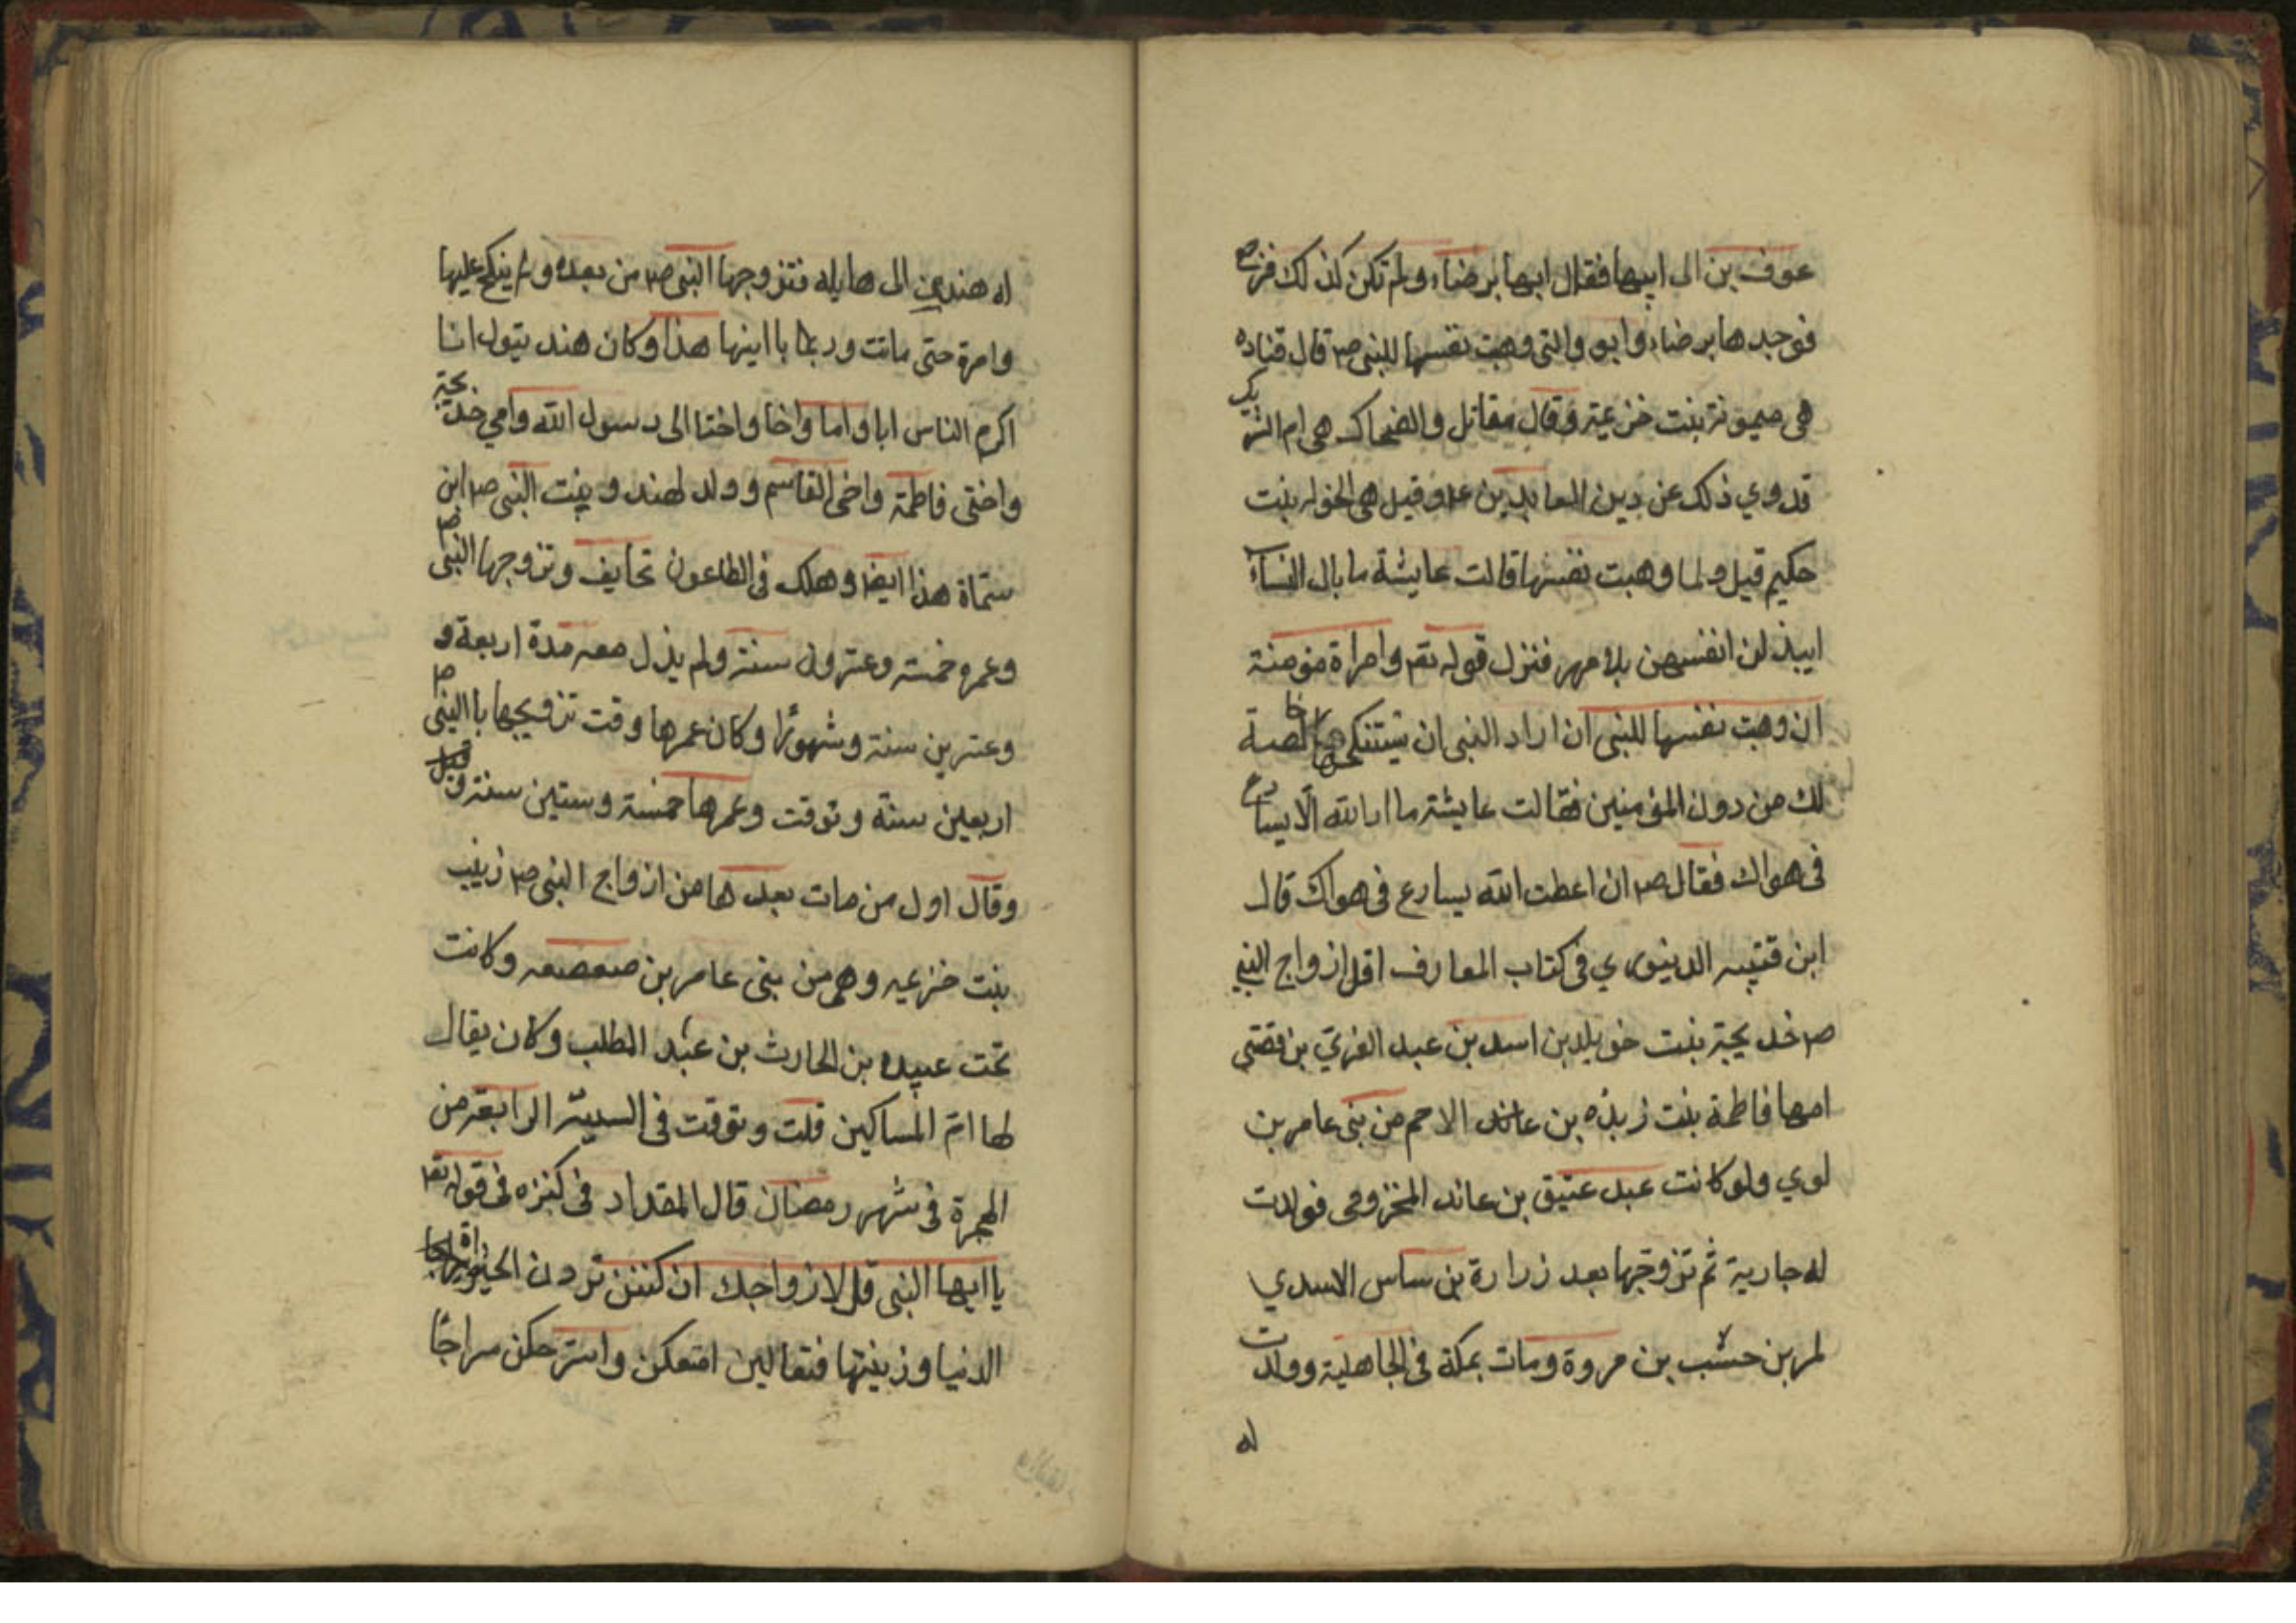 عوف بن الى ابيها فقال ابها برضاء ولم تكن كذلك فرجع
فوجدها برضاء وابو والتى وهبت نفسها للنبى ص قال قتاده
هى ميمونة بنت خزعية وقال مقاتل والضحاك هى ام الشريك
قد روي ذلك عن دين العابدين ع وقيل هى الخوله بنت
حكيم قيل ولما وهبت نفسها قالت عايشة ما بال النساء
ايبذلن انفسهن بلا مهر فنزل قوله تع وامراة مؤمنة
ان وهبت نفسها للنبى ان اراد النبى ان يستنكحها خالصة
لك من دون المؤمنين فقالت عايشة ما ارالله الا يسارع
فى هواك فقال ص ان اعطت الله يسارع فى هواك قال
ابن قتيبه الدينوري فى كتاب المعارف اقل ازواج النبي
ص خديجة بنت خويلد بن اسد بن عبد العزي بن قصى
امها فاطمة بنت زيذه بن عائد الاحم من بنى عامر بن
لوي ولو كانت عبد عتيق بن عاند المخزومى فولدت
له جارية ثم تزوجها بعد زرارة بن ساس الاسدي
لمر بن حشب بن مروة ومات بمكة فى الجاهلية وولدت
له
له هند بن الى هايله فتزوجها النبى ص من بعده ولم ينكح عليها
وامرة حتى ماتت وربما با ابنها هذا وكان هند يتول انا
اكرم الناس ابا واما واخا واختا الى رسول الله وامي خديجة
واختى فاطمة واخى القاسم وولد لهند وبنت النبى ص ابن
ستماة هذا ايضا وهلك فى الطاعون تحايف وتزوجها النبى ص
وعمره خمسة وعشرون سنة ولم يذل معه مدة اربعة و
وعشرين سنة وشهورًا وكان عمرها وقت تزويجها با النبى ص
اربعين سنة وتوقت وعمرها خمسة وستين سنة و
وقال اول من مات بعدها من ازواج النبى ص زينب
بنت خزعيه وهى من بنى عامر بن صعصعه وكانت
تحت عبيده بن الحارث بن عبد المطلب وكان يقال
لها ام المساكين قلت وتوقت فى السنة الرابعة من
الهجرة فى شهر رمضان قال المقداد فى كنزه فى قوله تع
يا ايها النبى قل لازواجك ان كنتن تردن الحيوة
الدنيا وزينتها فتعالين امتعكن واسترحكن سراجًا